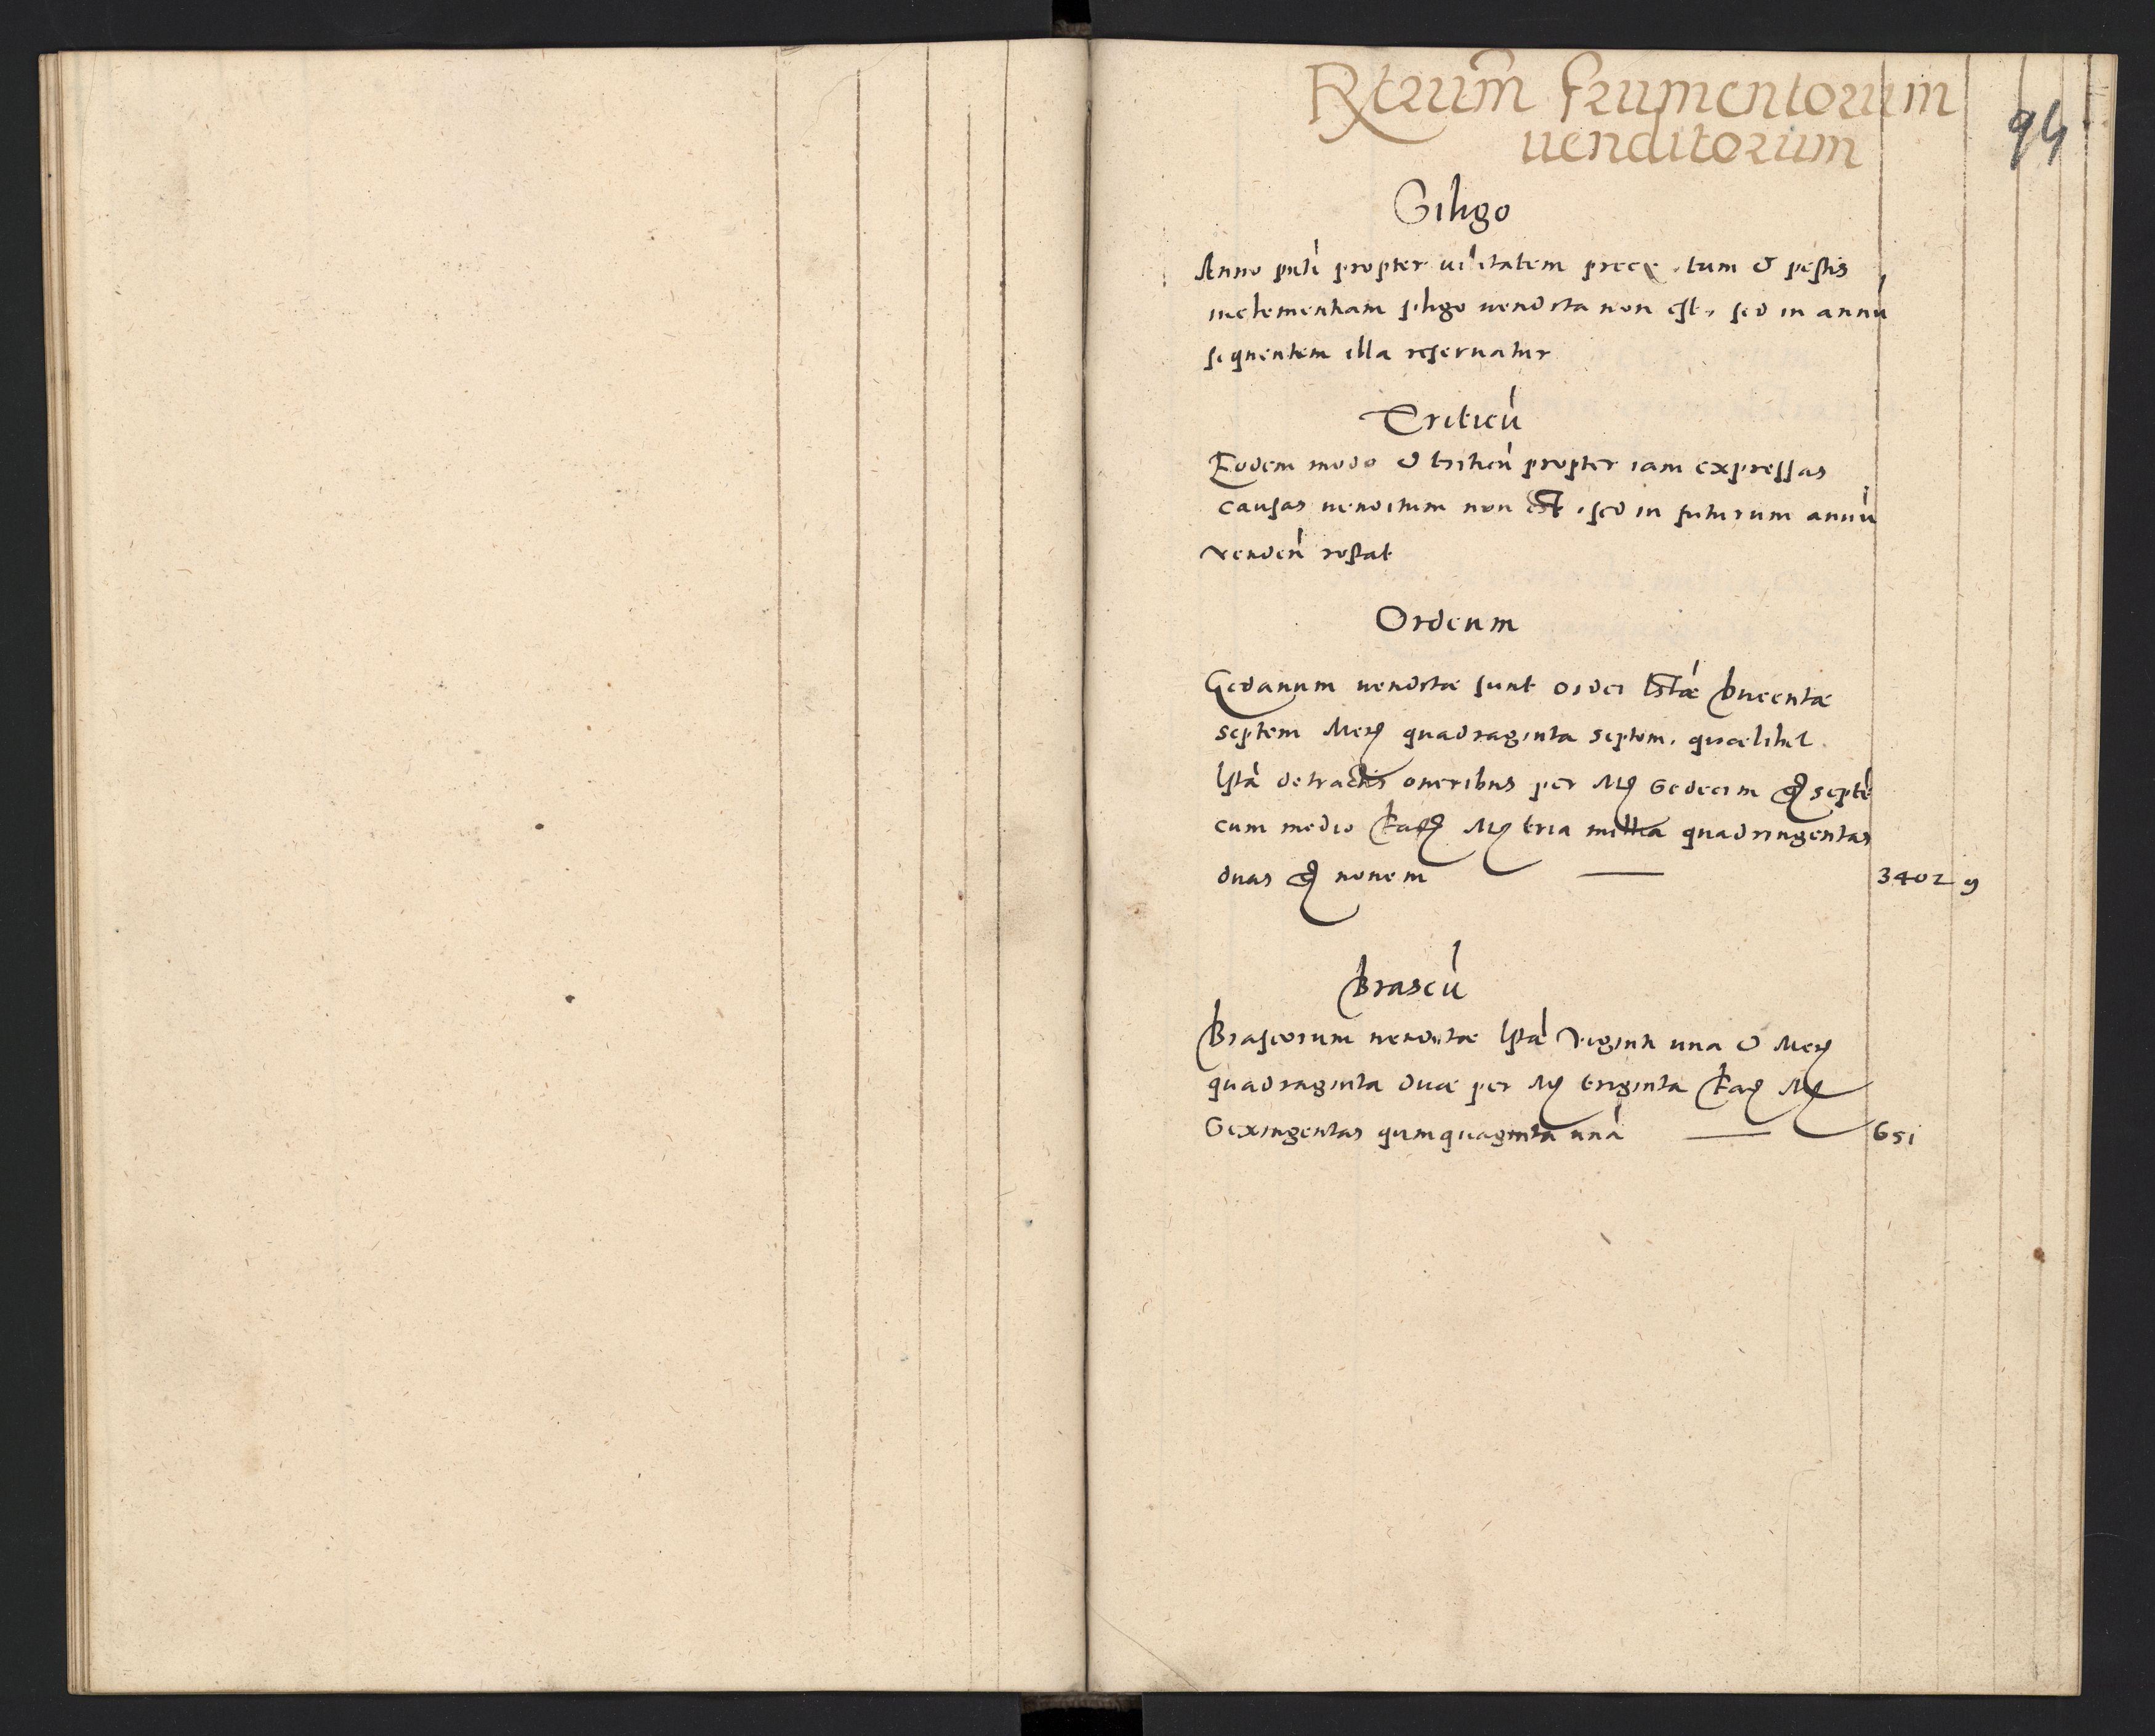 Rxterum̃ frumentorum
uenditorum
94
Siligo
Anno pñti propter uilitatem precÿ, tum & pestis
inclementiam siligo uendita non est, sed in annũ
sequentem illa reseruatur
Triticũ
Eodem modo & triticũ propter iam expressas
causas uenditum non est, sed in futurum annũ
venden̄ restat
Ordeum
Gedanum uenditæ sunt ordei lstæ Ducentæ
septem Mer quadraginta septem, quælibet
lsta detractis oneribus per Mr Sedecim gr septē
cum medio facr Mr tria millia quadringentas
duas gr nouem — 3402 9
Brasea
Braseorum uenditæ lstæ viginti una & Mer
quadraginta duæ per Mr triginta fac Mr
Sexingentas quinquaginta unã — 651